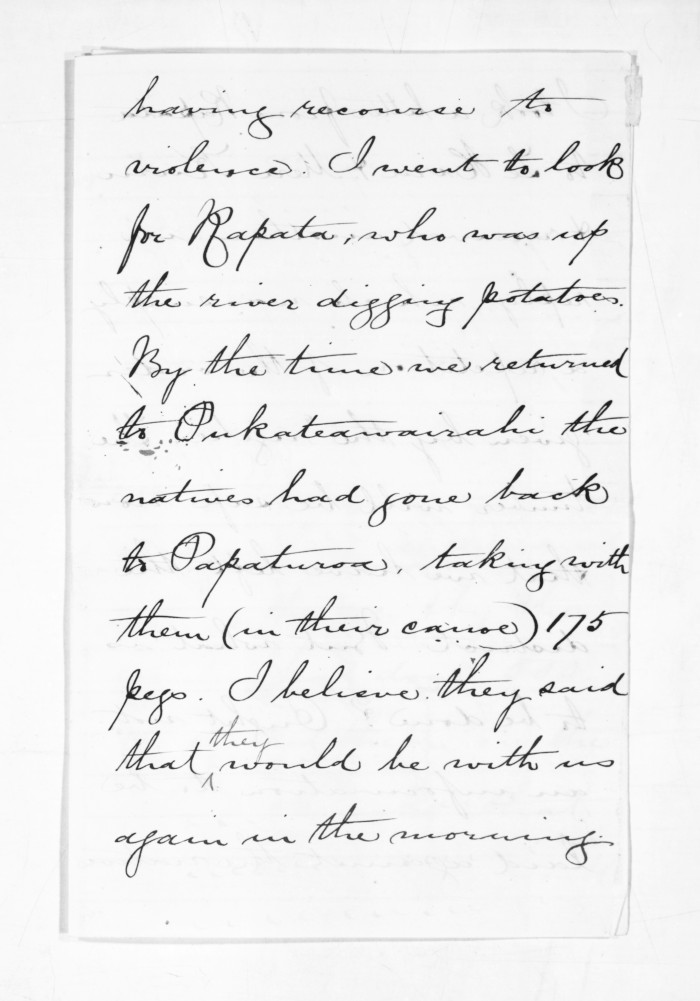 having recourse to
violence. I went to look
for Rapata, who was up
the river digging potatoes.
By the time we returned
to Pukateawairahi the
natives had gone back
to Papaturoa, taking with
them (in their canoe) 175
pegs. I believe they said
that they would be with us
again in the morning.